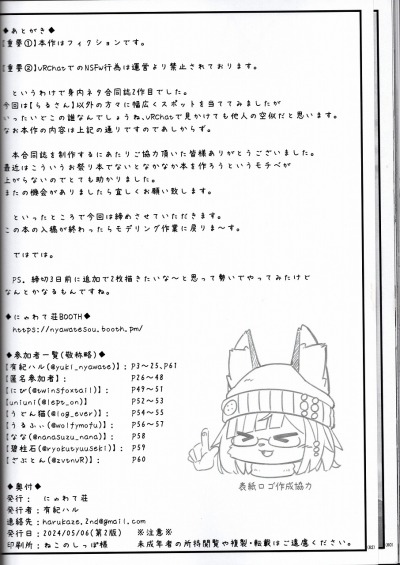 ◆あとがき◆
【重要①】本作はフィクションです。
【重要②】VRChatでのNSFW行為は運営より禁止されております。
というわけで身内ネタ合同誌2作目でした。
今回は【らるさん】以外の方々に幅広くスポットを当ててみましたが
いったいどこの誰なんでしょうね、VRChatで見かけても他人の空似だと思います。
なお本作の内容は上記の通りですのであしからず。
本合同誌を制作するにあたりご協力頂いた皆様ありがとうございました。
最近はこういうお祭り本でないとなかなか本を作ろうというモチベが
上がらないのでとても助かりました。
またの機会がありましたら宜しくお願い致します。
といったところで今回は締めさせていただきます。
この本の入稿が終わったらモデリング作業に戻りま〜す。
ではでは。
PS. 締切3日前に追加で2枚描きたいな〜と思って勢いでやってみたけど
なんとかなるもんですね。
◆にゃわて荘BOOTH◆
https://nyawatesou.booth.pm/
◆参加者一覧(敬称略)◆
【有紀ハル(@yuki_nyawate)】: P3〜25,P61
【匿名参加者】: P26〜48
【にび(@twinsfoxtail)】: P49〜51
【uniuni(@lept_on)】 P52〜53
【うどん猫(@log_ever)】 P54〜55
【うるふぃ(@wolfymofu)】 P56〜57
【なな(@nanasuzu_nana)】 P58
【碧柱石(@ryokutyuuseki)】 P59
【ざぶとん(@zvtnVR)】 P60
表紙ロゴ作成協力
◆奥付◆
発行: にゃわて荘
発行者: 有紀ハル
連絡先: harukaze.2nd@gmail.com
発行日: 2024/05/06(第2版) ※注意※
印刷所: ねこのしっぽ様 未成年者の所持閲覧や複製・転載はご遠慮ください。
(62)
(60)